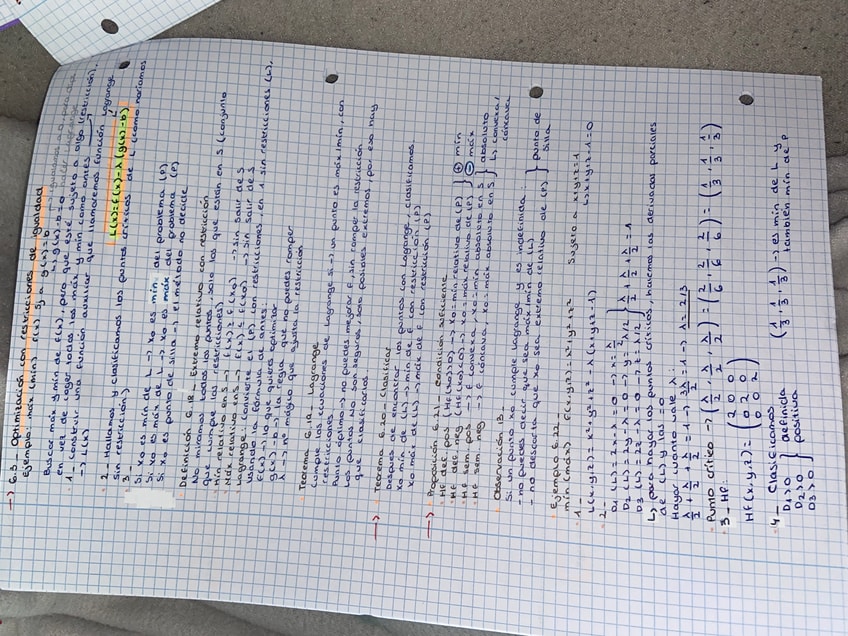 → 6.3 Optimización con restricciones de igualdad
Ejemplo: máx (mín) f(x) s.a g(x)=b
↳ g(x)-b=0
Buscar máx y mín de f(x), pero que esté sujeto a algo (restricción),
en vez de coger todos los máx y mín como antes
1 - Construir una función auxiliar que llamaremos función Lagrange
→ L(x)
L(x)=f(x)-λ(g(x)-b)
2 - Hallamos y clasificamos los puntos críticos de L (como hacíamos
sin restricción)
3 -
Si x0 es mín de L → x0 es mín. del problema (P)
Si x0 es máx de L → x0 es máx. del problema (P)
Si x0 es punto de silla → el método no decide
Definición 6.18 - Extremo relativo con restricción
No miramos todos los puntos, solo los que están en S (conjunto
que cumple las restricciones)
Mín relativo en S → f(x) ≥ f(x0) → sin salir de S
Máx relativo en S → f(x) ≤ f(x0) → sin salir de S
Lagrange: convierte el (P) con restricciones, en 1 sin restricciones (L),
usando la fórmula de antes:
f(x) → lo que quieres optimizar
g(x)-b → la regla que no puedes romper
λ → nº mágico que ajusta la restricción
Teorema 6.19 - Lagrange
Cumple las ecuaciones de Lagrange si → un punto es máx/mín, con
restricciones
Punto óptimo → no puedes mejorar f, sin romper la restricción
Los puntos no son seguros, solo posibles extremos, por eso hay
que clasificarlos
→ Teorema 6.20 - Clasificar
Después de encontrar los puntos con Lagrange, clasificamos
x0 mín de (L) → mín de f con restricción (P)
x0 máx de (L) → máx de f con restricción (P)
→ Proposición 6.21 - Condición suficiente
• Hf def. pos (Hf(x0)>0) → x0=mín relativo de (P) } ⊕ mín
• Hf def. neg (Hf(x0)<0) → x0=máx relativo de (P) } ⊖ máx
• Hf sem. pos → f convexa, x0=mín absoluto en S } absoluto
• Hf sem. neg → f cóncava, x0=máx absoluto en S } ↳ convexa/
cóncava
Observación 13
Si un punto x0 cumple Lagrange y es indefinida:
- no puedes decir que sea máx/mín de (L) } punto de
- no descarta que x0 sea extremo relativo de (P) } silla
Ejemplo 6.22 -
mín (máx) f(x,y,z)=x²+y²+z² sujeto a x+y+z=1
↳ x+y+z-1=0
1 -
L(x,y,z)=x²+y²+z²-λ(x+y+z-1)
2 -
D1(L)=2x-λ=0 → x=λ/2
D2(L)=2y-λ=0 → y=λ/2 } λ/2+λ/2+λ/2=1
D3(L)=2z-λ=0 → z=λ/2
↳ para hallar los puntos críticos, hacemos las derivadas parciales
de (L) y las =0
Hayar cuanto vale λ:
λ/2+λ/2+λ/2=1 → 3λ/2=1 → λ=2/3
Punto crítico → (λ/2, λ/2, λ/2)=(2/6, 2/6, 2/6)=(1/3, 1/3, 1/3)
3 - Hf:
Hf(x,y,z)=(2 0 0
0 2 0
0 0 2)
4 - Clasificamos
D1>0 } definida (1/3, 1/3, 1/3) → es mín de L y
D2>0 } positiva también mín de P
D3>0